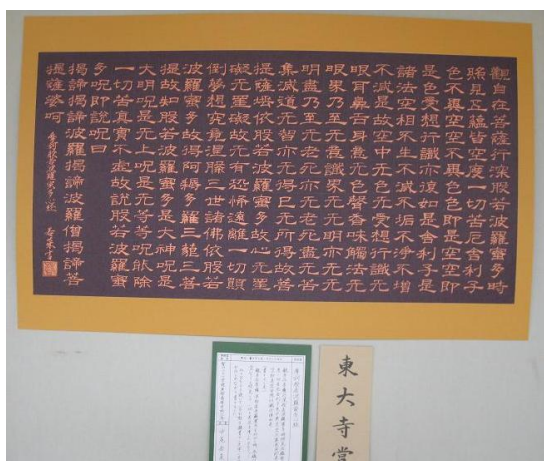 觀自在菩薩行深般若波羅蜜多時
照見五蘊皆空度一切苦厄舍利子
色不異空空不異色色即是空空即
是色受想行識亦復如是舍利子是
諸法空相不生不滅不垢不淨不增
不減是故空中无色无受想行識无
眼耳鼻舌身意无色聲香味觸法无
眼界乃至无意識界无无明亦无无
明盡乃至无老死亦无老死盡无苦
集滅道无智亦无得以无所得故菩
提薩埵依般若波羅蜜多故心无罣
礙无罣礙故无有恐怖遠離一切顛
倒夢想究竟涅槃三世諸佛依般若
波羅蜜多故得阿耨多羅三藐三菩
提故知般若波羅蜜多是大神呪是
大明呪是无上呪是无等等呪能除
一切苦真實不虛故說般若波羅蜜
多呪即說呪曰
揭諦揭諦波羅揭諦波羅僧揭諦菩
提薩婆呵
東大寺堂